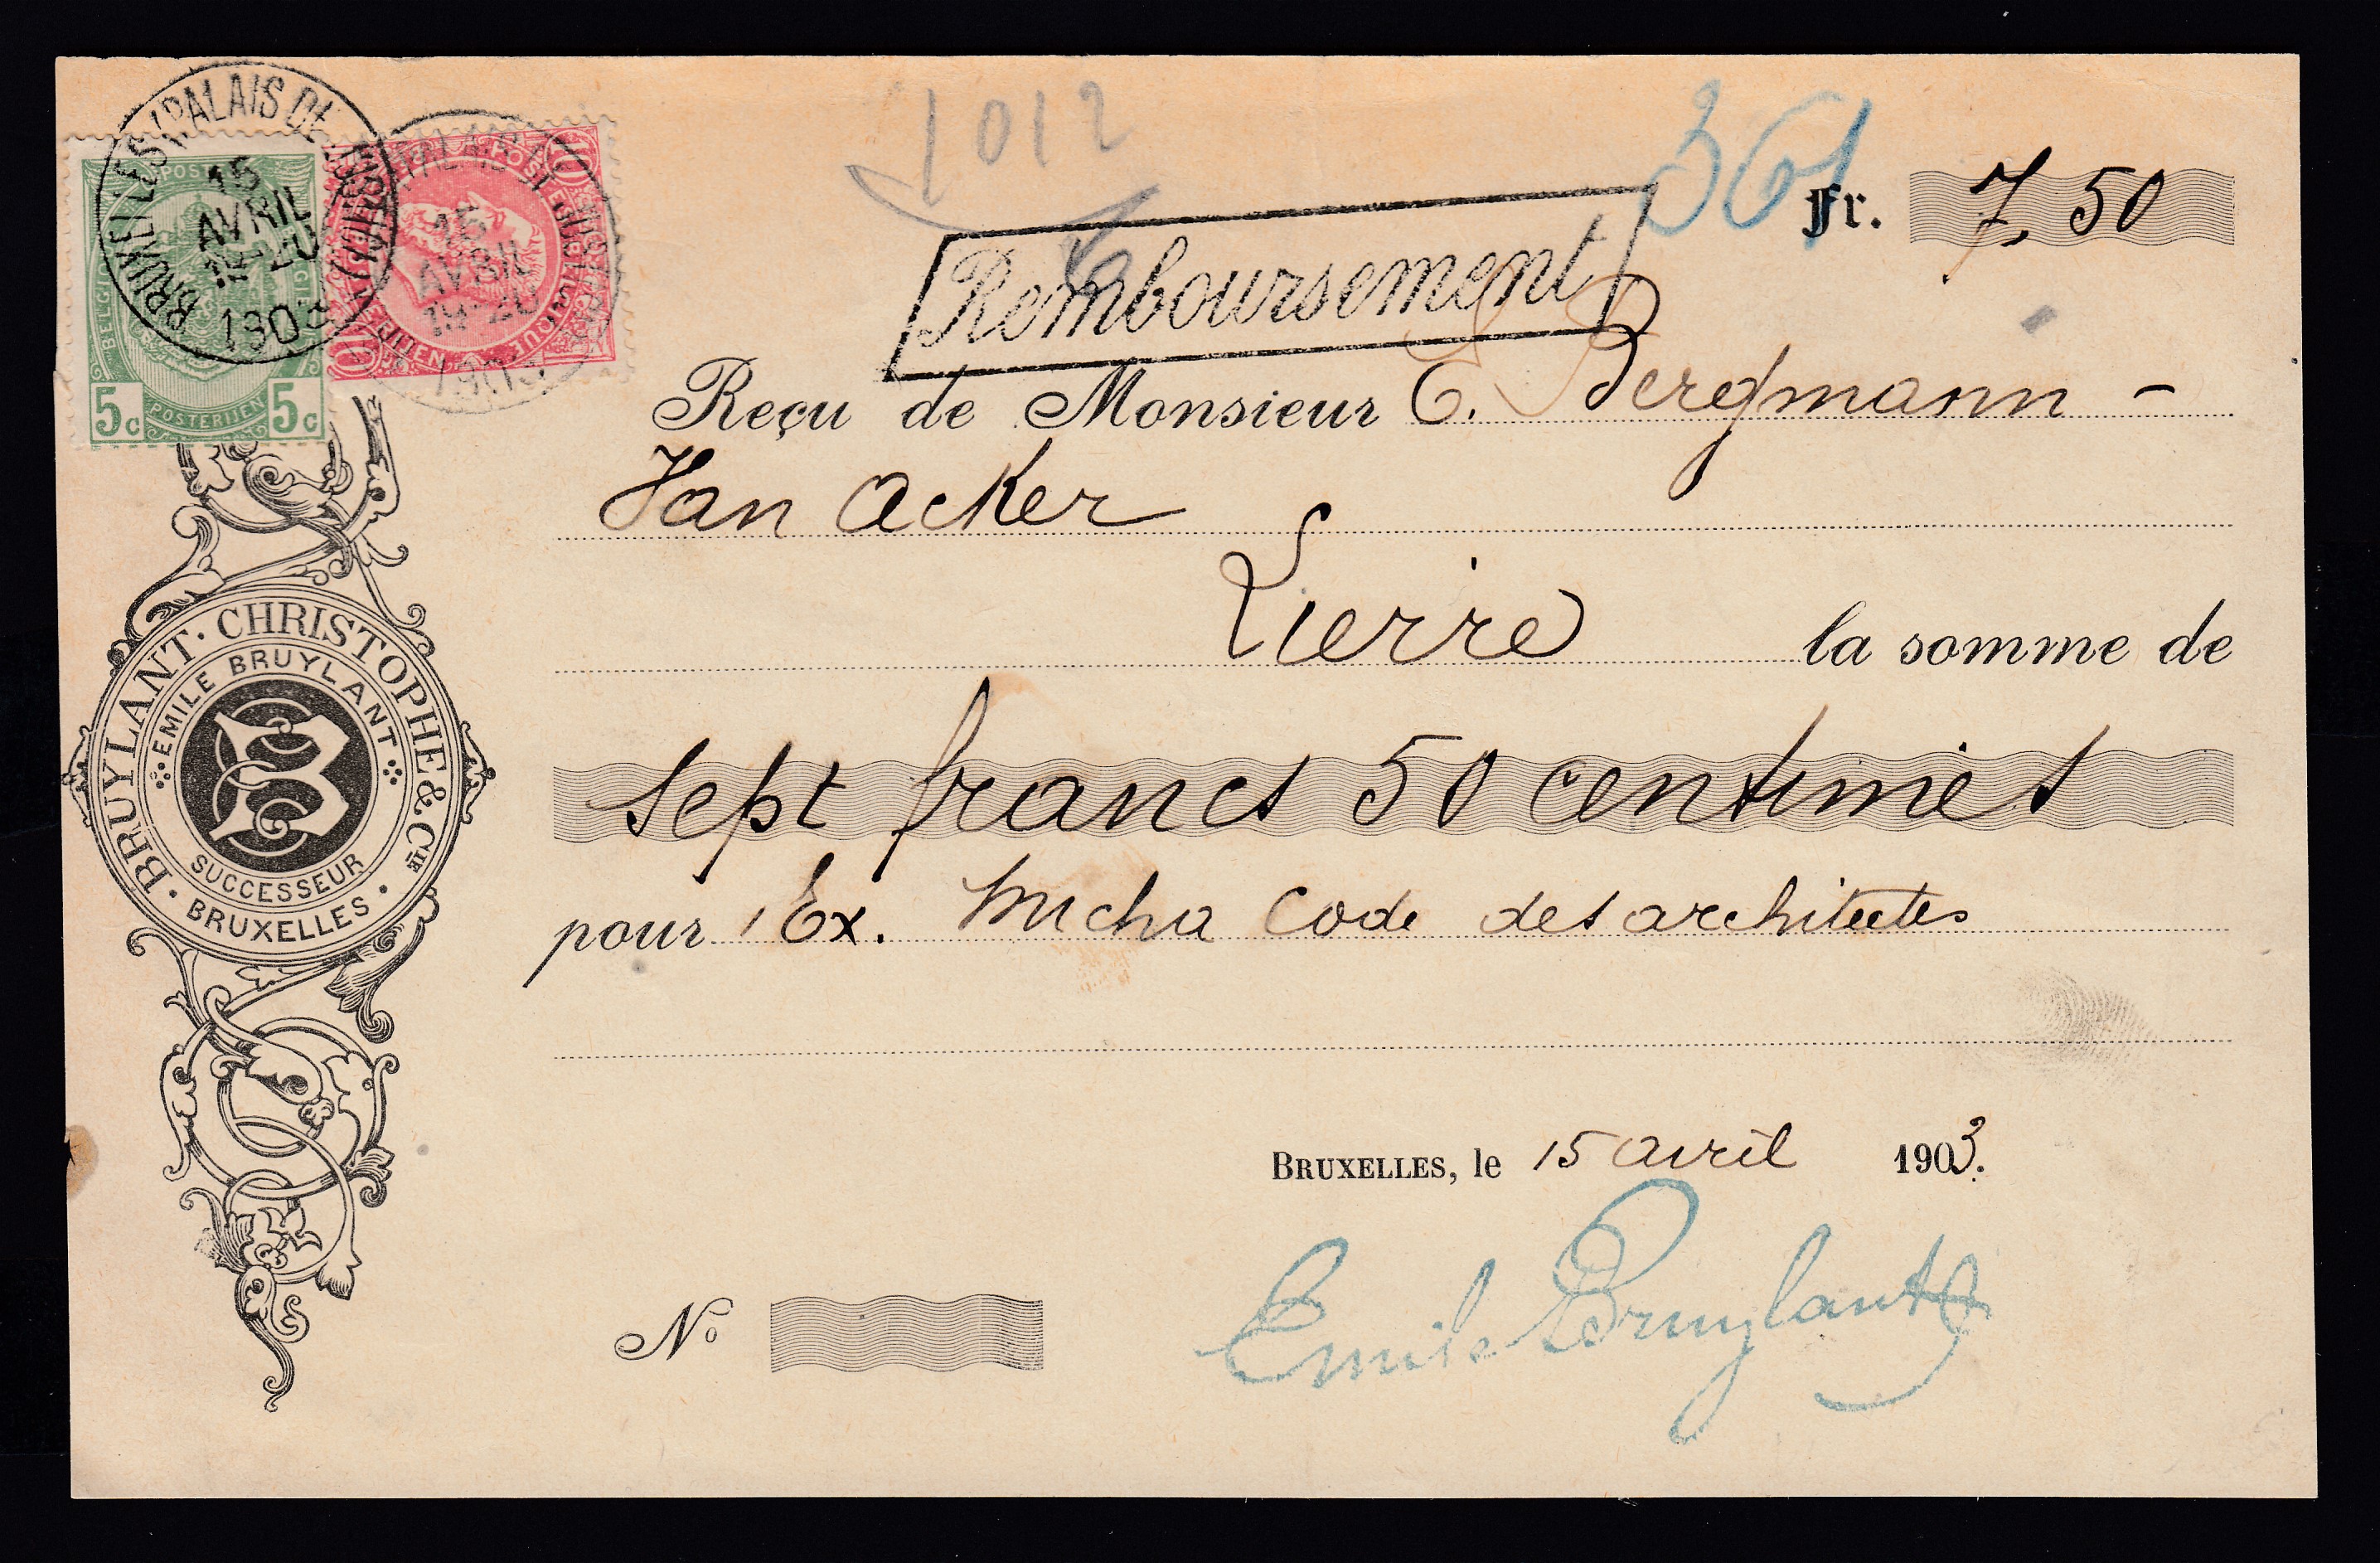 1012
361
Fr. 7,50
Remboursement
BRUXELLES (PALAIS DE JUSTICE)
15
AVRIL
1903
15
AVRIL
1903
POSTERIJEN
5c 5c
10 10
Reçu de Monsieur E. Bergmann -
Van Acker
Lierre la somme de
sept francs 50 centimes
pour 1 Ex. Micha Code des architectes
BRUXELLES, le 15 avril 1903.
Emile Bruylant
No
BRUYLANT · CHRISTOPHE & CIE
EMILE BRUYLANT
B
SUCCESSEUR
BRUXELLES